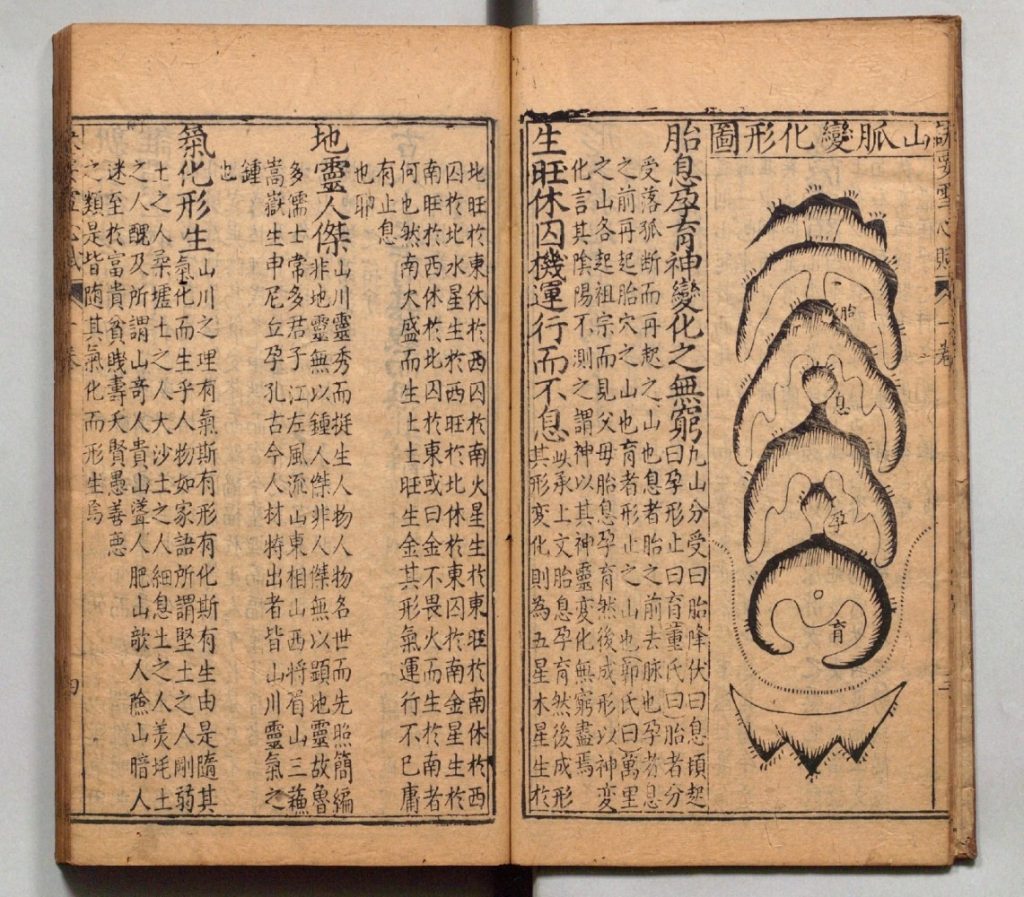 訣要雪心賦
一卷
山脈變化形圖
胎
息
孕
育
胎息孕育神變化之無窮
九山分受曰胎降伏曰息頃起
曰孕形止曰育董氏曰胎者分
受落狐断而再起之山也息者胎之前去脉也孕者息
之前再起胎穴之山也育者形止之山也郭氏曰萬里
之山各起祖宗而見父母胎息孕育然後成形以神變
化言其陰陽不測之謂神以其神靈變化無窮盡焉
生旺休囚機運行而不息
此承上文胎息孕育然後成形
其形變化則為五星木星生於
北旺於東休於西囚於南火星生於東旺於南休於西
囚於北水星生於西旺於北休於東囚於南金星生於
南旺於西休於北囚於東或曰金不畏火而生於南者
何也然南火盛而生土土旺生金其形氣運行不已庸
有止息
也耶
地靈人傑
山川靈秀而挺生人物人物名世而先照簡編
非地靈無以鍾人傑非人傑無以顕地靈故魯
多儒士常多君子江左風流山東相山西將眉山三蘓
嵩嶽生申尼丘孕孔古今人材特出者皆山川靈氣之
鍾
也
氣化形生
山川之理有氣斯有形有化斯有生由是隨其
氣化而生乎人物如家語所謂堅土之人剛弱
土之人柔壚土之人大沙土之人細息土之人羙土
之人醜及所謂山奇人貴山人肥山敧人險山暗人
迷至於富貴貧賤壽夭賢愚善惡
之類是皆随其氣化而形生焉